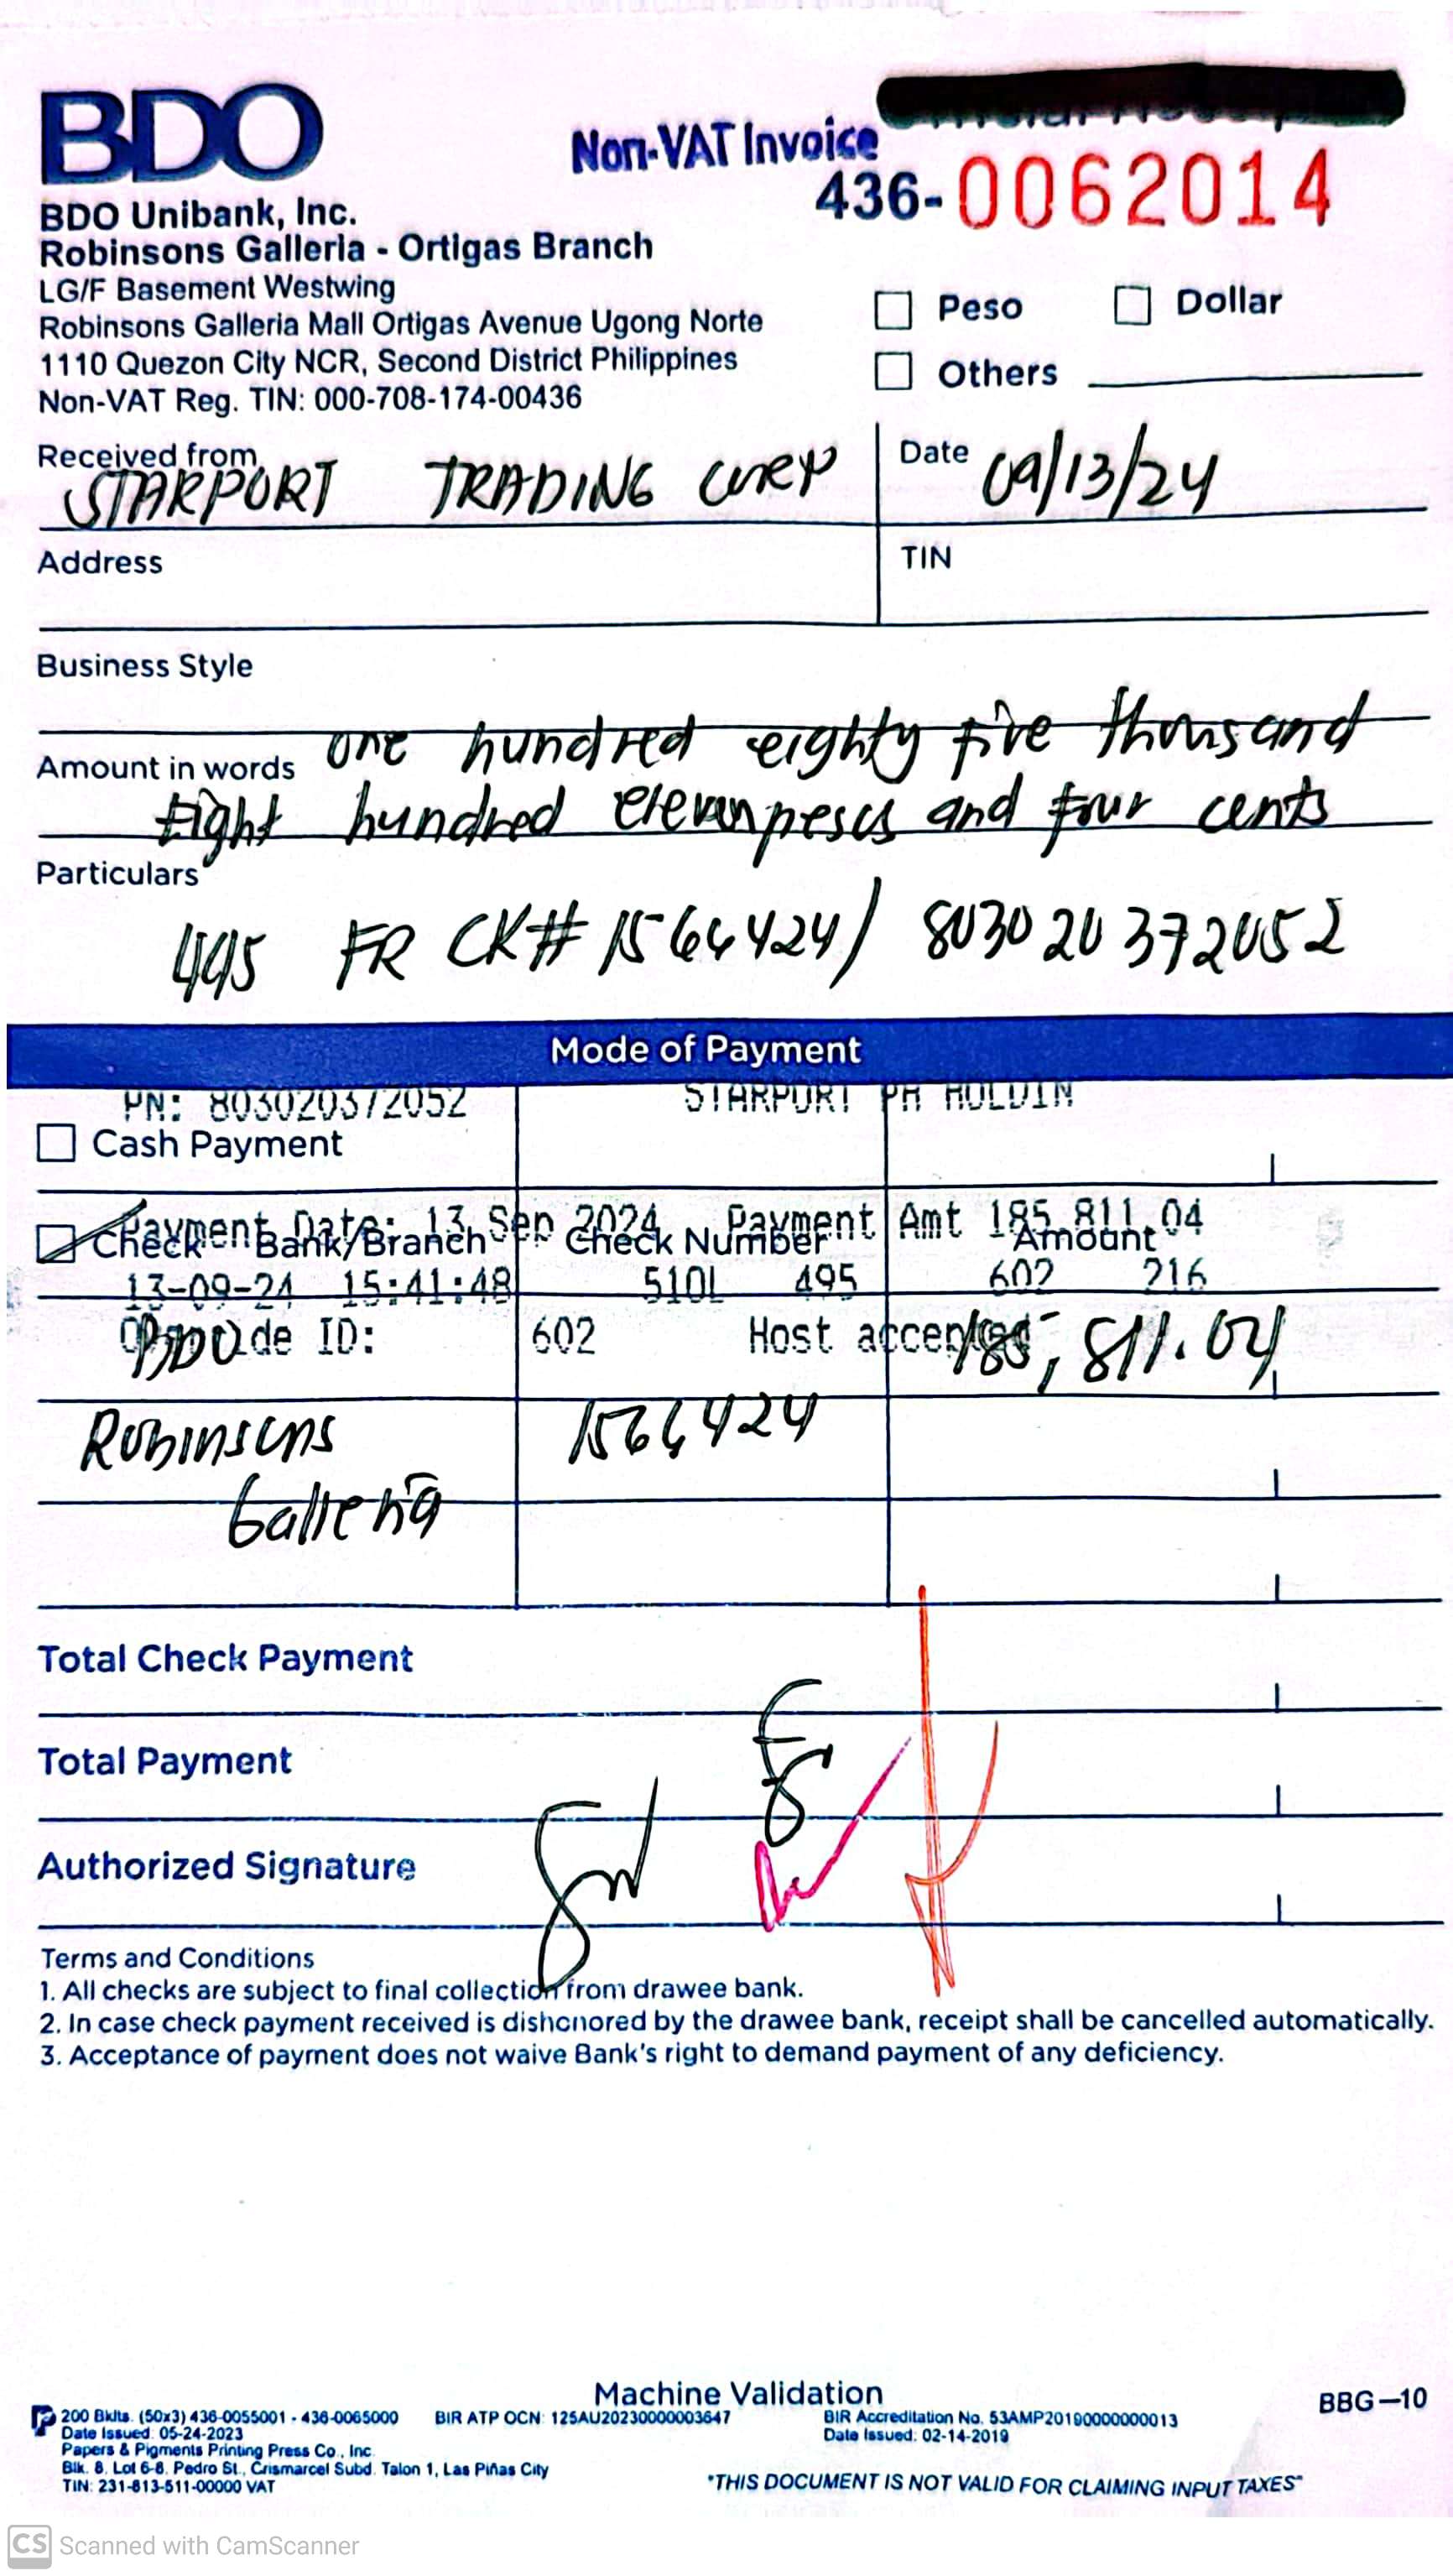 BDO
Non-VAT Invoice
436-0062014
BDO Unibank, Inc.
Robinsons Galleria - Ortigas Branch
LG/F Basement Westwing
Robinsons Galleria Mall Ortigas Avenue Ugong Norte
1110 Quezon City NCR, Second District Philippines
Non-VAT Reg. TIN: 000-708-174-00436
Peso Dollar
Others
Received from STARPORT TRADING CORP
Date 09/13/24
Address
TIN
Business Style
Amount in words one hundred eighty five thousand
Eight hundred eleven pesos and four cents
Particulars
495 FR CK# 1566424/ 803020372052
Mode of Payment
PN: 803020372052 STARPORT PH HOLDIN
Cash Payment
Payment Date: 13 Sep 2024 Payment Amt 185,811.04
Check Bank/Branch Check Number Amount
13-09-24 15:41:48 510L 495 602 216
BDO 185,811.04
ID: 602 Host accepted
Robinsons 1566424
Galleria
Total Check Payment
Total Payment
Authorized Signature
Terms and Conditions
1. All checks are subject to final collection from drawee bank.
2. In case check payment received is dishonored by the drawee bank, receipt shall be cancelled automatically.
3. Acceptance of payment does not waive Bank's right to demand payment of any deficiency.
Machine Validation
BBG-10
200 Bklts. (50x3) 436-0055001 - 436-0065000
Date Issued: 05-24-2023
Papers & Pigments Printing Press Co., Inc.
Blk. 8, Lot 6-8, Pedro St., Crismarcel Subd. Talon 1, Las Piñas City
TIN: 231-813-511-00000 VAT
BIR ATP OCN: 125AU20230000003647
BIR Accreditation No. 53AMP20190000000013
Date Issued: 02-14-2019
"THIS DOCUMENT IS NOT VALID FOR CLAIMING INPUT TAXES"
CS Scanned with CamScanner